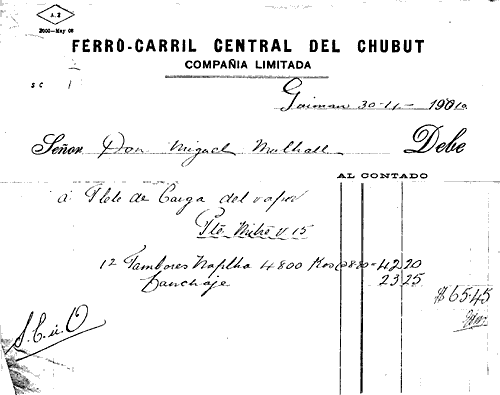 A.Z
2000—May 09
FERRO-CARRIL CENTRAL DEL CHUBUT
COMPAÑIA LIMITADA
S C 1
Gaiman 30-11- 1910
Señor Don Miguel Mulhall Debe
AL CONTADO
á Flete de Carga del vapor
Pte Mitre v. 15
12 Tambores Naptha 4800 Kos @ 8.80 = 42 20
Lanchaje 23 25
$ 65.45
S. E. ú O